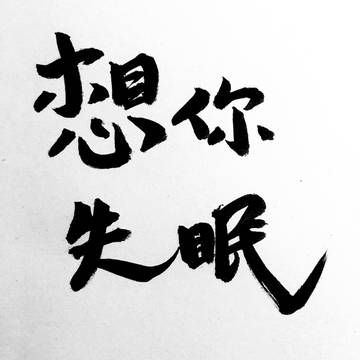 想你
失眠